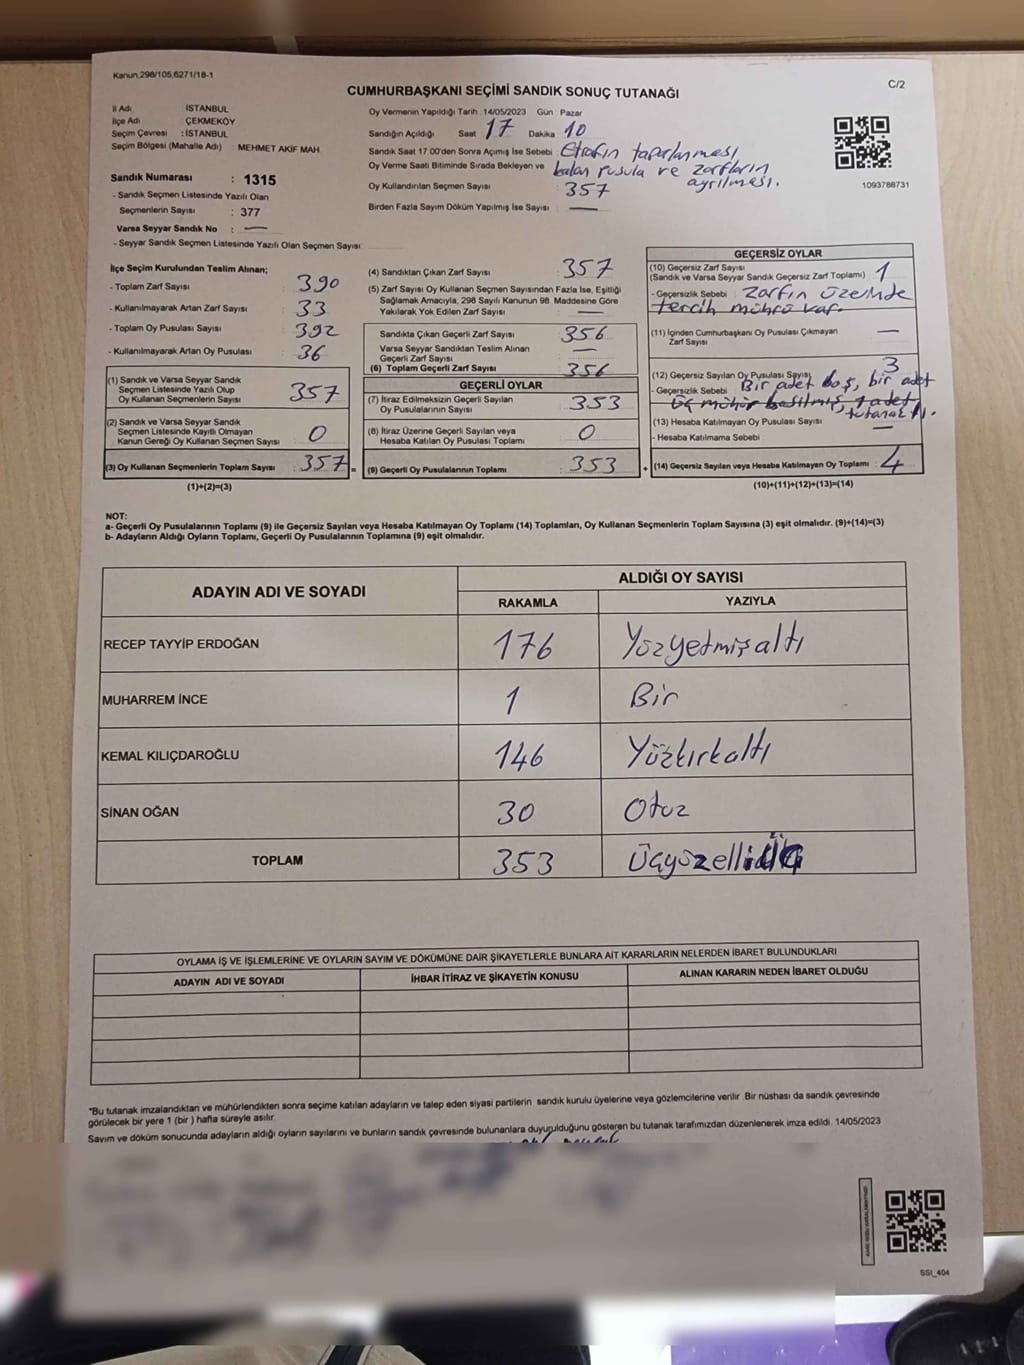 Kanun,298/105,6271/18-1
C/2
CUMHURBAŞKANI SEÇİMİ SANDIK SONUÇ TUTANAĞI
İl Adı İSTANBUL
İlçe Adı ÇEKMEKÖY
Seçim Çevresi : İSTANBUL
Seçim Bölgesi (Mahalle Adı) MEHMET AKİF MAH.
Sandık Numarası : 1315
- Sandık Seçmen Listesinde Yazılı Olan
Seçmenlerin Sayısı : 377
Varsa Seyyar Sandık No : —
- Seyyar Sandık Seçmen Listesinde Yazılı Olan Seçmen Sayısı
Oy Vermenin Yapıldığı Tarih 14/05/2023 Gün Pazar
Sandığın Açıldığı Saat 17 Dakika 10
Sandık Saat 17.00'den Sonra Açımış İse Sebebi Etrafın toparlanması
Oy Verme Saati Bitiminde Sırada Bekleyen ve kalan pusula ve zarfların
ayrılması.
Oy Kullandırılan Seçmen Sayısı 357
Birden Fazla Sayım Döküm Yapılmış İse Sayısı —
1093788731
İlçe Seçim Kurulundan Teslim Alınan;
- Toplam Zarf Sayısı : 390
- Kullanılmayarak Artan Zarf Sayısı : 33
- Toplam Oy Pusulası Sayısı : 392
- Kullanılmayarak Artan Oy Pusulası : 36
(1) Sandık ve Varsa Seyyar Sandık
Seçmen Listesinde Yazılı Olup
Oy Kullanan Seçmenlerin Sayısı : 357
(2) Sandık ve Varsa Seyyar Sandık
Seçmen Listesinde Kayıtlı Olmayan
Kanun Gereği Oy Kullanan Seçmen Sayısı : 0
(3) Oy Kullanan Seçmenlerin Toplam Sayısı : 357 =
(1)+(2)=(3)
(4) Sandıktan Çıkan Zarf Sayısı 357
(5) Zarf Sayısı Oy Kullanan Seçmen Sayısından Fazla İse, Eşitliği
Sağlamak Amacıyla, 298 Sayılı Kanunun 98. Maddesine Göre
Yakılarak Yok Edilen Zarf Sayısı : —
Sandıkta Çıkan Geçerli Zarf Sayısı : 356
Varsa Seyyar Sandıktan Teslim Alınan
Geçerli Zarf Sayısı : —
(6) Toplam Geçerli Zarf Sayısı : 356
GEÇERLİ OYLAR
(7) İtiraz Edilmeksizin Geçerli Sayılan
Oy Pusulalarının Sayısı : 353
(8) İtiraz Üzerine Geçerli Sayılan veya
Hesaba Katılan Oy Pusulası Toplamı : 0
(9) Geçerli Oy Pusulalarının Toplamı : 353 +
GEÇERSİZ OYLAR
(10) Geçersiz Zarf Sayısı
(Sandık ve Varsa Seyyar Sandık Geçersiz Zarf Toplamı) : 1
- Geçersizlik Sebebi : Zarfın üzerinde
tercih mührü var.
(11) İçinden Cumhurbaşkanı Oy Pusulası Çıkmayan
Zarf Sayısı —
(12) Geçersiz Sayılan Oy Pusulası Sayısı 3
- Geçersizlik Sebebi : Bir adet boş, bir adet
üç mühür basılmış, 1 adet
tutanak
(13) Hesaba Katılmayan Oy Pusulası Sayısı —
- Hesaba Katılmama Sebebi
(14) Geçersiz Sayılan veya Hesaba Katılmayan Oy Toplamı : 4
(10)+(11)+(12)+(13)=(14)
NOT:
a- Geçerli Oy Pusulalarının Toplamı (9) ile Geçersiz Sayılan veya Hesaba Katılmayan Oy Toplamı (14) Toplamları, Oy Kullanan Seçmenlerin Toplam Sayısına (3) eşit olmalıdır. (9)+(14)=(3)
b- Adayların Aldığı Oyların Toplamı, Geçerli Oy Pusulalarının Toplamına (9) eşit olmalıdır.
ADAYIN ADI VE SOYADI ALDIĞI OY SAYISI
RAKAMLA YAZIYLA
RECEP TAYYİP ERDOĞAN 176 Yüzyetmişaltı
MUHARREM İNCE 1 Bir
KEMAL KILIÇDAROĞLU 146 Yüzkırkaltı
SİNAN OĞAN 30 Otuz
TOPLAM 353 Üçyüzelliüç
OYLAMA İŞ VE İŞLEMLERİNE VE OYLARIN SAYIM VE DÖKÜMÜNE DAİR ŞİKAYETLERLE BUNLARA AİT KARARLARIN NELERDEN İBARET BULUNDUKLARI
ADAYIN ADI VE SOYADI İHBAR İTİRAZ VE ŞİKAYETİN KONUSU ALINAN KARARIN NEDEN İBARET OLDUĞU
*Bu tutanak imzalandıktan ve mühürlendikten sonra seçime katılan adayların ve talep eden siyasi partilerin sandık kurulu üyelerine veya gözlemcilerine verilir .Bir nüshası da sandık çevresinde
görülecek bir yere 1 (bir ) hafta süreyle asılır.
Sayım ve döküm sonucunda adayların aldığı oyların sayılarını ve bunların sandık çevresinde bulunanlara duyurulduğunu gösteren bu tutanak tarafımızdan düzenlenerek imza edildi. 14/05/2023
SSI_404